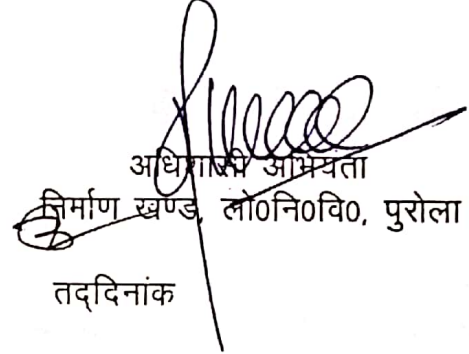 अधिशासी अभियंता
निर्माण खण्ड, लो0नि0वि0, पुरोला
तद्दिनांक